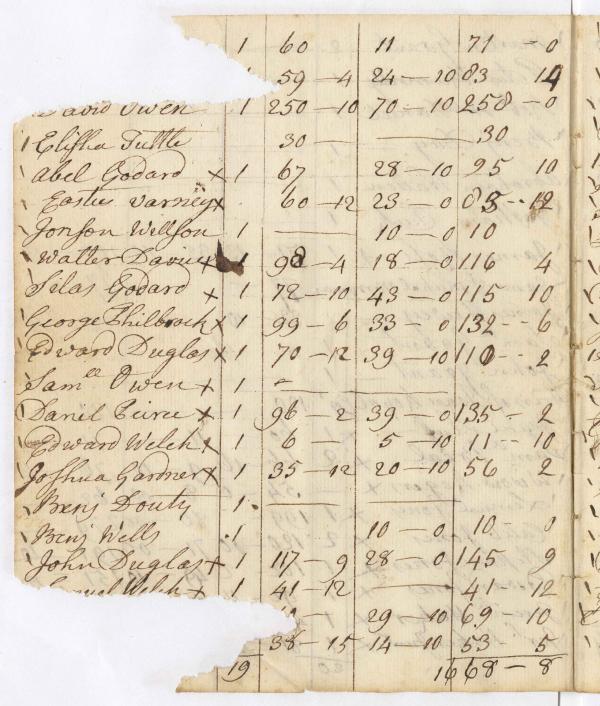 1 60 11 71 - 0
59 - 4 24 - 10 83 14
David Owen 1 250 - 10 70 - 10 258 - 0
Elisha Tuttle 30 - — 30
Abel Godard x 1 67 28 - 10 95 10
Eastes Varney x 60 - 12 23 - 0 83 - 12
Jonson Willson 1 — 10 - 0 10
Walter Davies x 1 98 - 4 18 - 0 116 4
Silas Godard x 1 72 - 10 43 - 0 115 10
George Philbrook x 1 99 - 6 33 - 0 132 - 6
Edward Duglas x 1 70 - 12 39 - 10 110 - 2
Samll Owen x 1 — —
Danil Peirce x 1 96 - 2 39 - 0 135 - 2
Edward Welch x 1 6 - 5 - 10 11 - 10
Joshua Gardner x 1 35 - 12 20 - 10 56 2
Benj Douty 1 — —
Benj Wells 1 10 - 0 10 - 0
John Duglas x 1 117 - 9 28 - 0 145 9
Welch x 1 41 - 12 — 41 12
29 - 10 69 - 10
38 - 15 14 - 10 53 - 5
19 1668 - 8